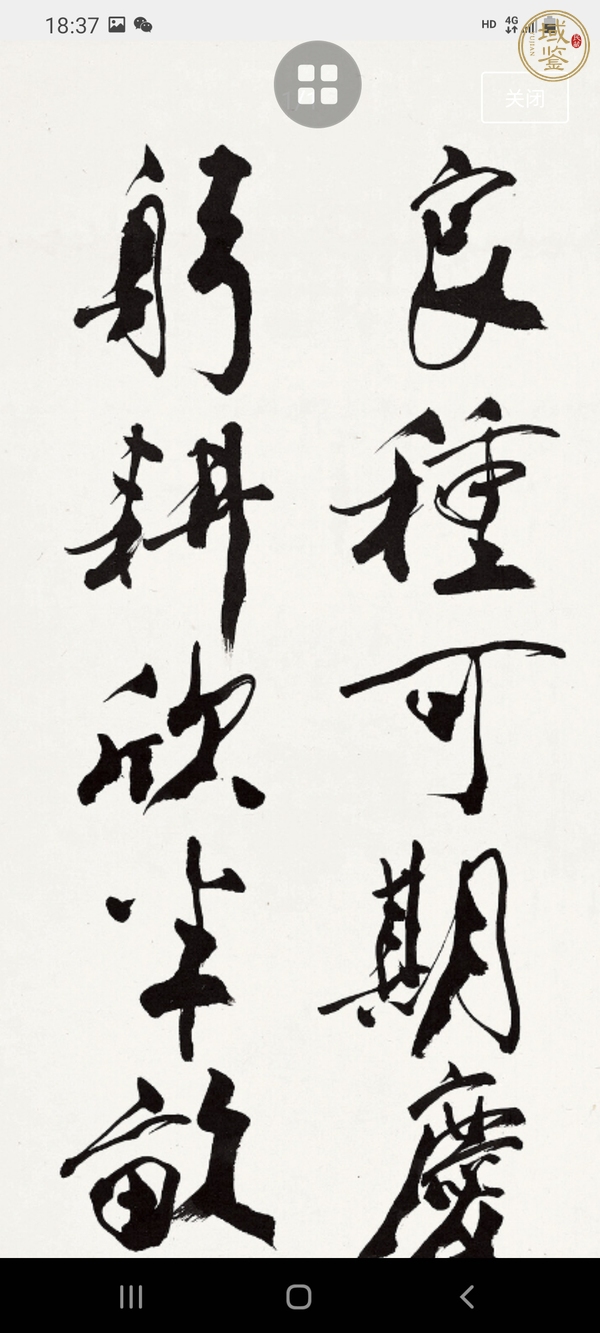 18:37
HD 4G
域鉴
YUJIAN
关闭
良種可期慶
躬耕欣半畝